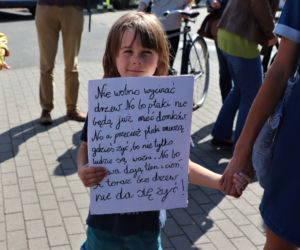 Nie wolno wycinać
drzew. No bo ptaki nie
będą już mieć domków.
No a przecież ptaki muszą
gdzieś żyć, bo nie tylko
ludzie są ważni. No bo
drzewa dają tlen i cień,
a teraz bez drzew
nie da się żyć!